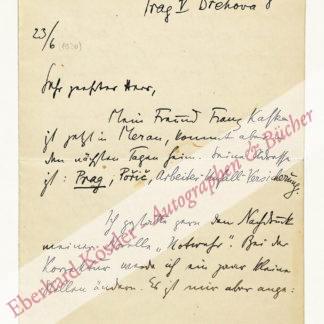 Prag V Břehová 8
23/6 (1920)
Sehr geehrter Herr,
Mein Freund Franz Kafka
ist jetzt in Meran, kommt aber
den nächsten Tagen heim. Seine Adresse
ist: Prag, Pořič, Arbeiter-Unfall-Versicherung.
Ich gestatte gern den Nachdruck
meiner Novelle „Notwehr". Bei der
Korrektur werde ich ein paar kleine
Stellen ändern. Es ist mir aber ange:
Eberhard Köstler Autographen & Bücher